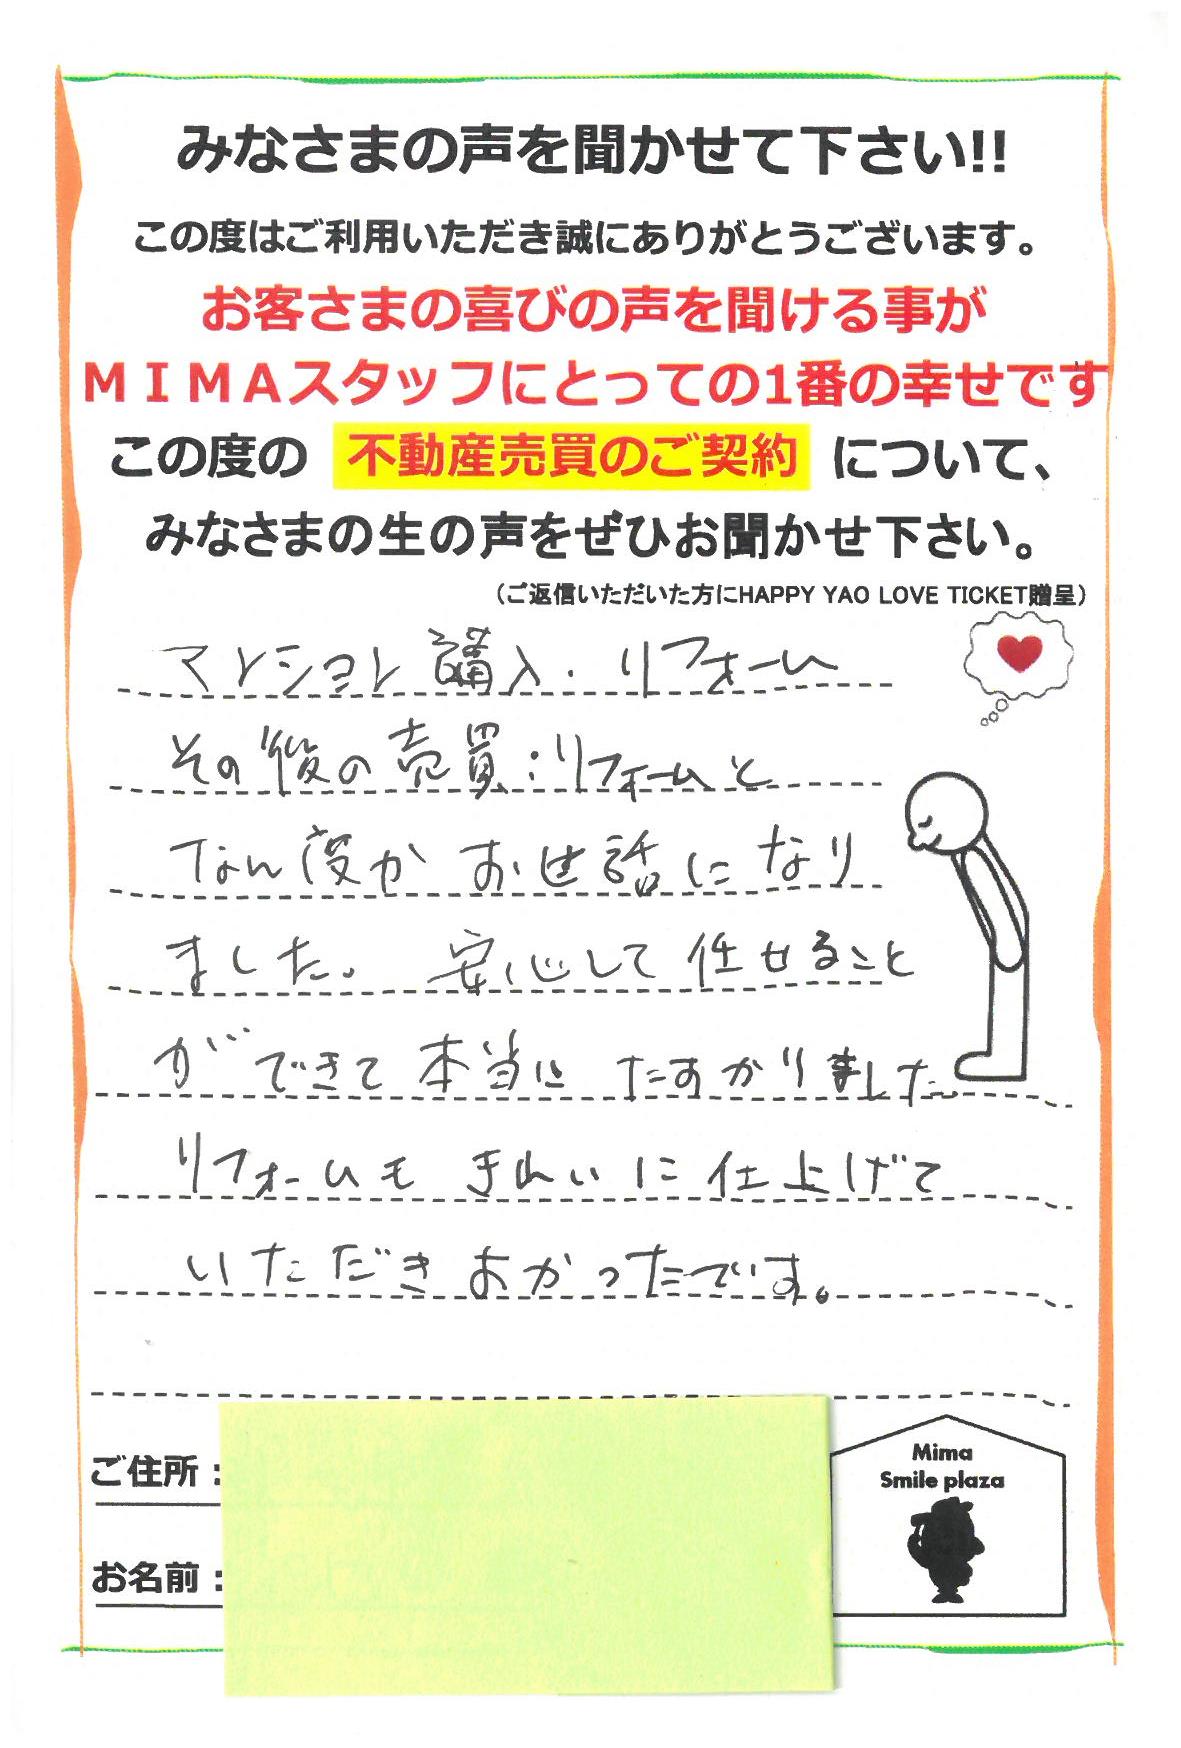 みなさまの声を聞かせて下さい!!
この度はご利用いただき誠にありがとうございます。
お客さまの喜びの声を聞ける事が
MIMAスタッフにとっての1番の幸せです
この度の 不動産売買のご契約 について、
みなさまの生の声をぜひお聞かせ下さい。
(ご返信いただいた方にHAPPY YAO LOVE TICKET贈呈)
マンション購入・リフォーム
その後の売買・リフォームと
なん度か お世話になり
ました。 安心して 任せること
ができて 本当に たすかりました
リフォームも きれいに 仕上げて
いただき よかったです。
ご住所:
お名前:
Mima
Smile plaza